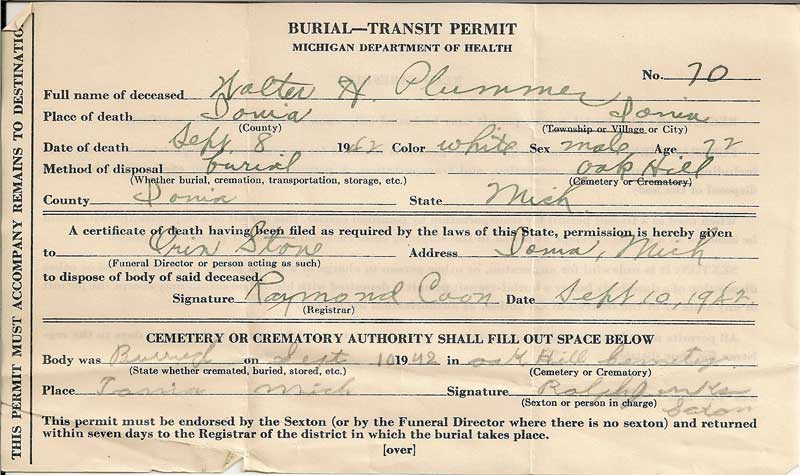 THIS PERMIT MUST ACCOMPANY REMAINS TO DESTINATIO
BURIAL—TRANSIT PERMIT
MICHIGAN DEPARTMENT OF HEALTH
No. 70
Full name of deceased Walter H. Plummer
Place of death Ionia Ionia
(County) (Township or Village or City)
Date of death Sept 8 1942 Color white Sex male Age 72
Method of disposal burial Oak Hill
(Whether burial, cremation, transportation, storage, etc.) (Cemetery or Crematory)
County Ionia State Mich
A certificate of death having been filed as required by the laws of this State, permission is hereby given
to Orin Stone Address Ionia, Mich
(Funeral Director or person acting as such)
to dispose of body of said deceased.
Signature Raymond Coon Date Sept 10, 1942.
(Registrar)
CEMETERY OR CREMATORY AUTHORITY SHALL FILL OUT SPACE BELOW
Body was on Sept 10 1942 in oak Hill
(State whether cremated, buried, stored, etc.) (Cemetery or Crematory)
Place Ionia Mich Signature Ralph
(Sexton or person in charge)
This permit must be endorsed by the Sexton (or by the Funeral Director where there is no sexton) and returned
within seven days to the Registrar of the district in which the burial takes place.
[over]